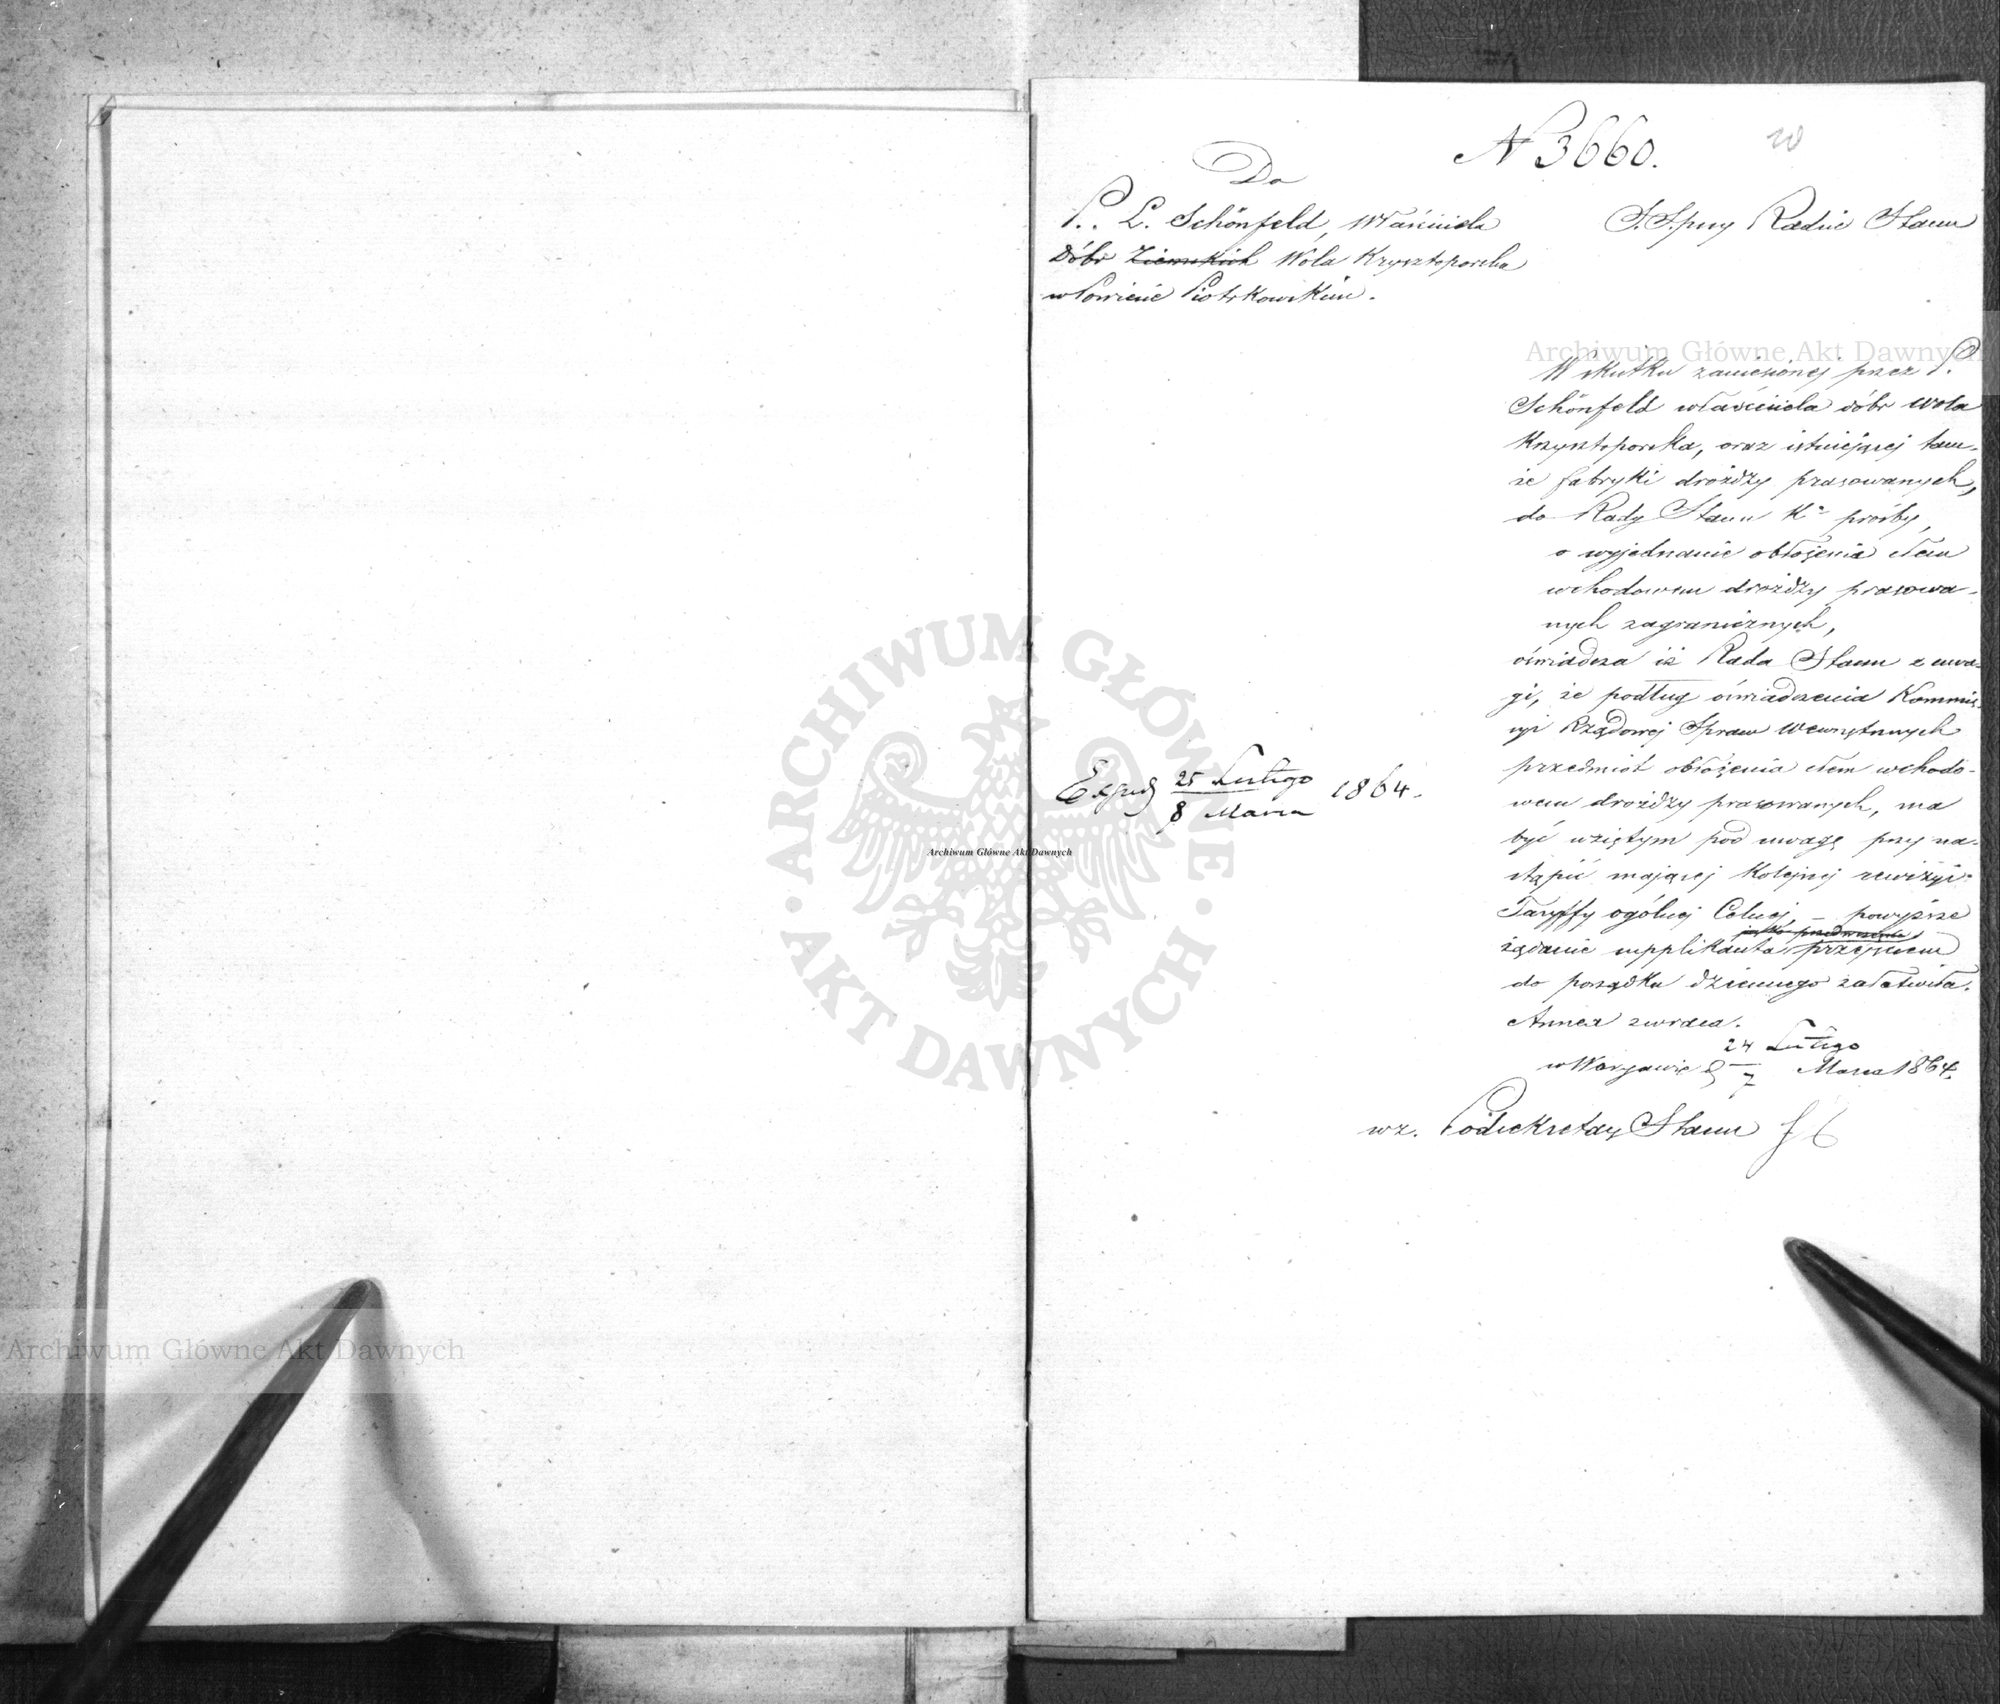 N 3660.
20
Do
P. L. Schönfeld, Właściciela
Dóbr Ziemskich Wola Krzysztoporska
w Powiecie Piotrkowskim.
S. S. przy Radzie Stanu
W skutku zaniesionej przez P.
Schönfeld właściciela dóbr Wola
Krzysztoporska, oraz istniejącej tam-
że fabryki drożdży prasowanych,
do Rady Stanu Kа prośby,
o wyjednanie obłożenia cłem
wchodowem drożdży prasowa-
nych zagranicznych,
oświadcza iż Rada Stanu z uwa-
gi, że podług oświadczenia Kommis-
syi Rządowej Spraw Wewnętrznych
przedmiot obłożenia cłem wchodo-
wem drożdży prasowanych, ma
być wziętym pod uwagę przy na-
stąpić mającej kolejnej rewizyi
Taryffy ogólnej Celnej, – powyższe
jako przedwczesne
żądanie supplikanta przejściem
do porządku dziennego załatwiła.
Annexa zwraca.
w Warszawie d. 24 Lutego
7 Marca 1864.
wz. Podsekretarz Stanu
Exped. 25 Lutego
8 Marca 1864.
Archiwum Główne Akt Dawnych
ARCHIWUM GŁÓWNE
· AKT DAWNYCH ·
Archiwum Główne Akt Dawnych
Archiwum Główne Akt Dawnych